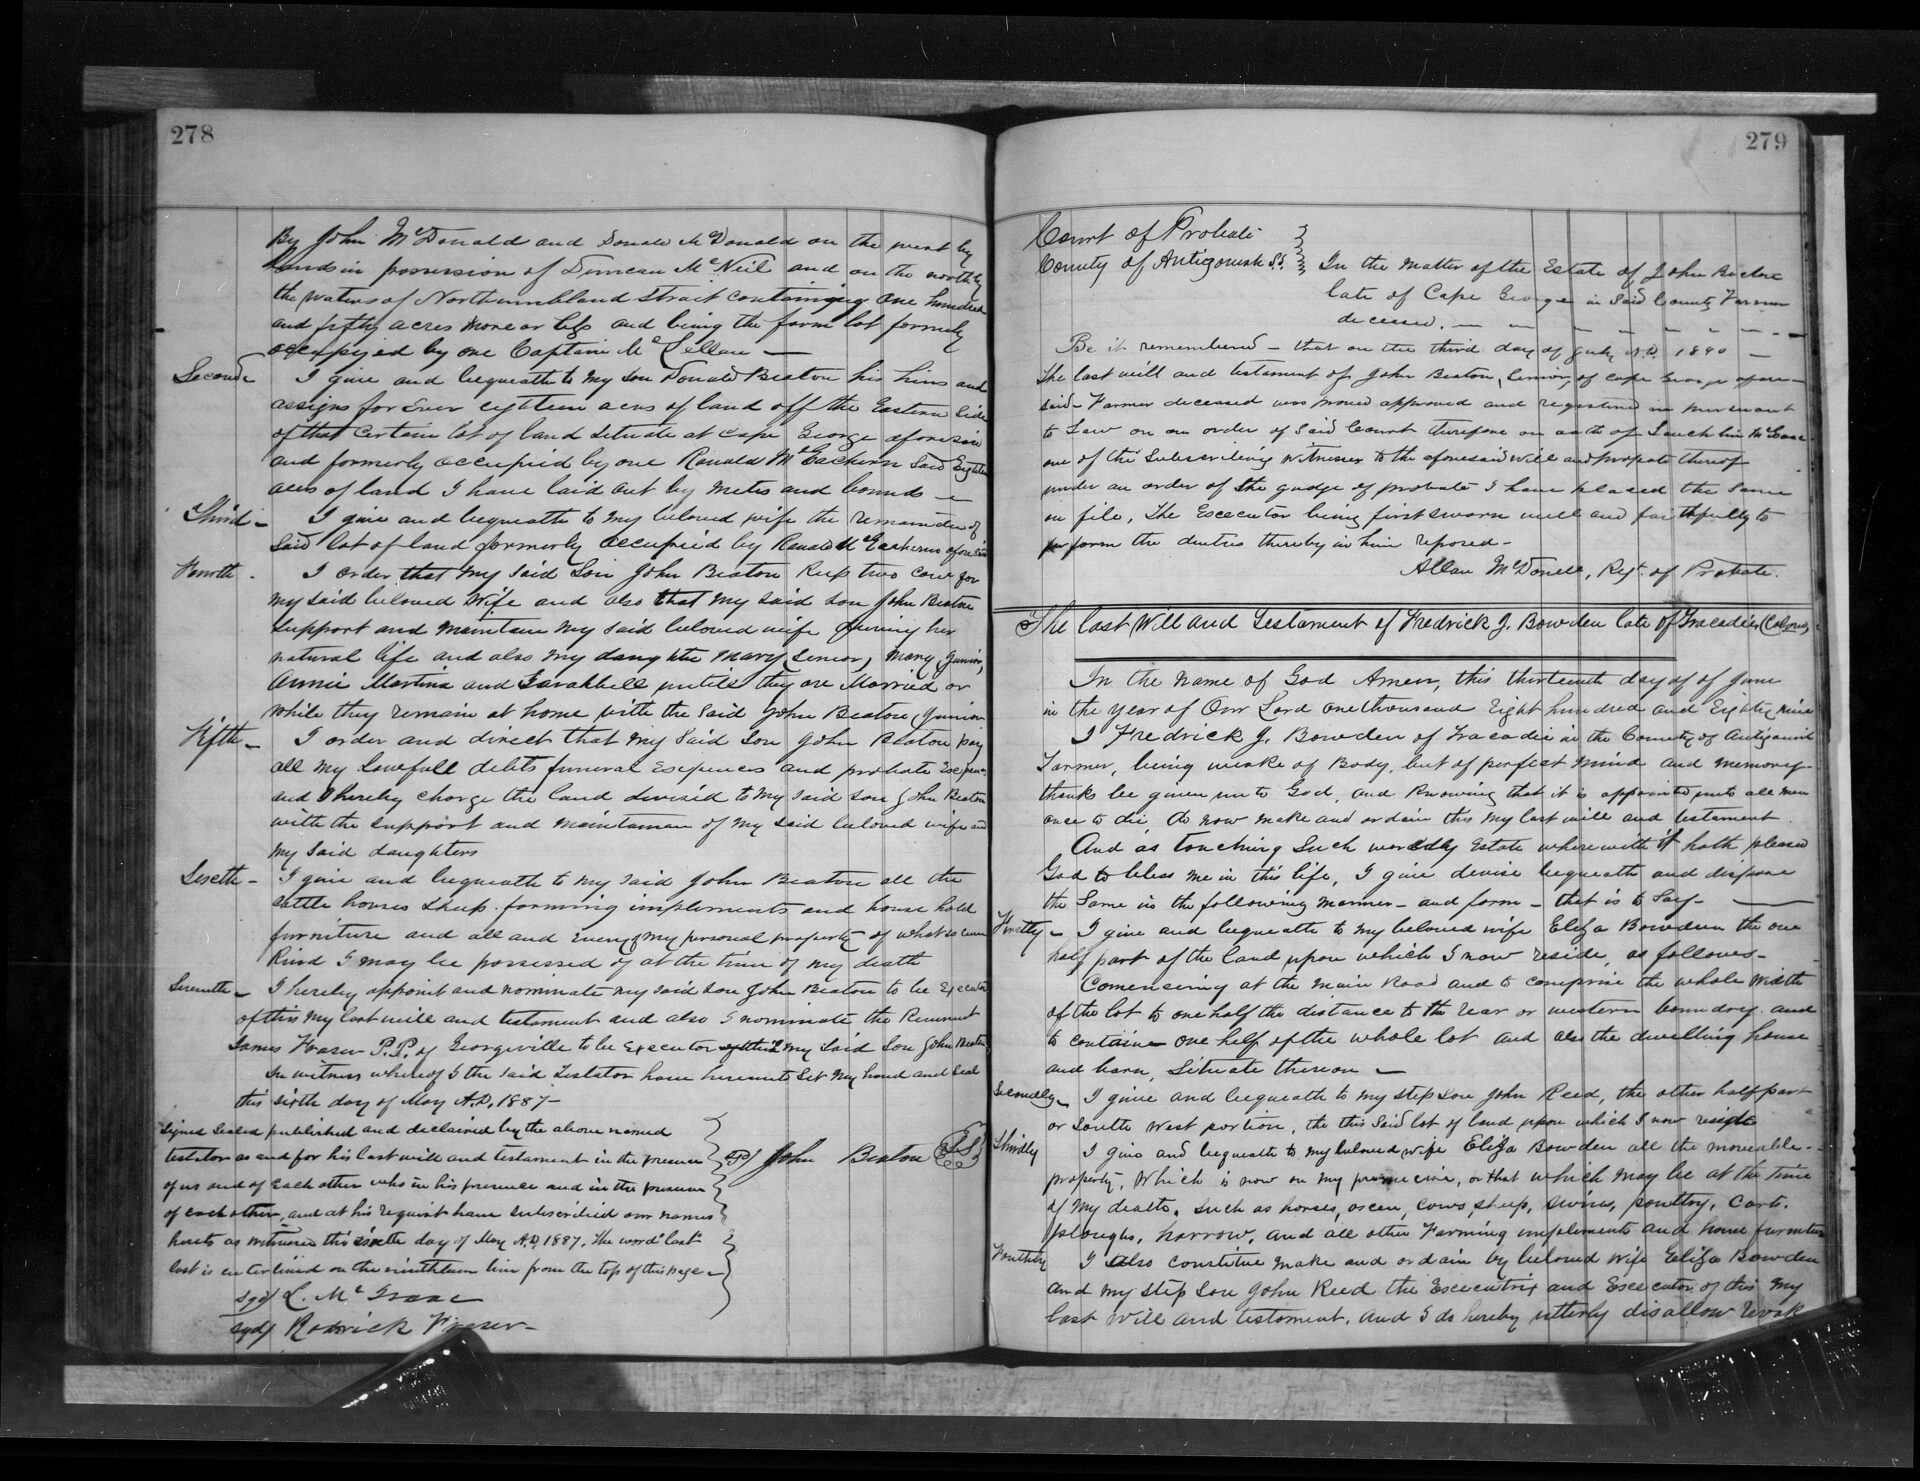 278
By John McDonald and Donald McDonald on the west by
lands in possession of Duncan McNeil and on the north by
the waters of Northumbland Strait containing One hundred
and fifty acres more or less and being the farm lot formely
occupyied by one Captain McLellan —
Second I give and bequeath to my son Donald Beaton his hirs and
assigns for Ever eighteen acres of land off the Eastern Side
of that certain lot of land situate at Cape George aforesaid
and formerly occupied by one Ronald McEachern said Eighteen
acres of land I have laid out by metes and bounds —
Third — I give and bequeath to my beloved wife the remainder of
said lot of land formerly occupied by Ronald McEachern aforesaid
Fourth - I order that my said Son John Beaton keep two cows for
my said beloved Wife and also that my said son John Beaton
support and mentain my said beloved wife during her
natural life and also my daughter Mary (Senior) Mary (Junior)
Annie Martina and Sarahbell untill they are Married or
while they remain at home with the said John Beaton (Junior
Fifth — I order and direct that my said Son John Beaton pay
all my Lawfull debts funeral Expences and probate Expences
and I hereby charge the land devised to my said son John Beaton
with the support and maintainan of my said beloved wife and
my said daughters
Sixth — I give and bequeath to my said John Beaton all the
cattle horses sheep farming implements and house hold
furniture and all and Every of my personal property of what so ever
Kind I may be possessed of at the time of my death
Seventh — I hereby appoint and nominate my said son John Beaton to be Executor
of this my last will and testament and also I nominate the Reverent
James Fraser P.P. of Georgeville to be Executor my said Son John Beaton
In witness whereof I the said Testator have hereunto Set my hand and Seal
this sixth day of May A.D. 1887—
Signed Sealed published and declaired by the above named
testator as and for his last will and testament in the presence
of us and of Each other who in his presence and in the presence
of each other, and at his request have subscribed our names
hereto as witnesses this sixth day of May A.D. 1887. The word "last"
last is interlined on the ninthteen line from the top of this page —
sgd John Beaton (LS)
sgd L. McIsaac
sgd Rodrick Fraser —
279
Court of Probate
County of Antigonish S.S. In the Matter of the Estate of John Beaton
late of Cape George in said County Farmer
deceased. — — — — — —
Be it remembered — that on the third day of July A.D. 1890 —
the last will and testament of John Beaton, Senior, of Cape George afore—
said — Farmer deceased was proved approved and registered in pursuant
to Law on an order of said Court therefore on oath of Lauchlin McIsaac
one of the Subscribing witnesses to the aforesaid will and probate thereof
under an order of the judge of probate I have placed the same
on file, The Executor being first sworn well and faithfully to
perform the duties thereby in him reposed —
Allan McDonell, Regt. of Probate.
The last Will and Testament of Fredrick J. Bowden late of Tracadie
In the name of God Amen, this thirteenth day of of June
in the year of Our Lord one thousand Eight hundred and Eighty nine
I Fredrick J. Bowden of Tracadie in the County of Antigonish
Farmer, being weake of Body, but of perfect mind and memory—
thanks be given un to God, and Knowing that it is appointed unto all men
once to die, do now make and ordain this my last will and testament.
And as touching Such worldly Estate where with it hath pleased
God to bless me in this life, I give devise bequeath and dispose
the Same in the following manner — and form — that is to Say —
Firstly — I give and bequeath to my beloved wife Eliza Bowden the one
half part of the land upon which I now reside, as follows —
Comencing at the main Road and to comprise the whole width
of the lot to one half the distance to the rear or western boundry and
to containe one half of the whole lot and also the dwelling house
and barn, Situate thereon —
Secondly — I give and bequeath to my step son John Reed, the other half part
or South west portion, the this Said lot of land upon which I now reside
Thirdly I give and bequeath to my beloved wife Eliza Bowden all the moveable —
property, Which is now on my premecise, or that which may be at the time
of my death, such as horses, oxen, cows, sheep, swine, poultry, carts.
ploughs, harrow, and all other Farming implements and home furniture
Fourthly I also constitue make and ordain by beloved Wife Eliza Bowden
and my step son John Reed the Executrix and Executor of this my
last will and testament, And I do hereby utterly disallow revok